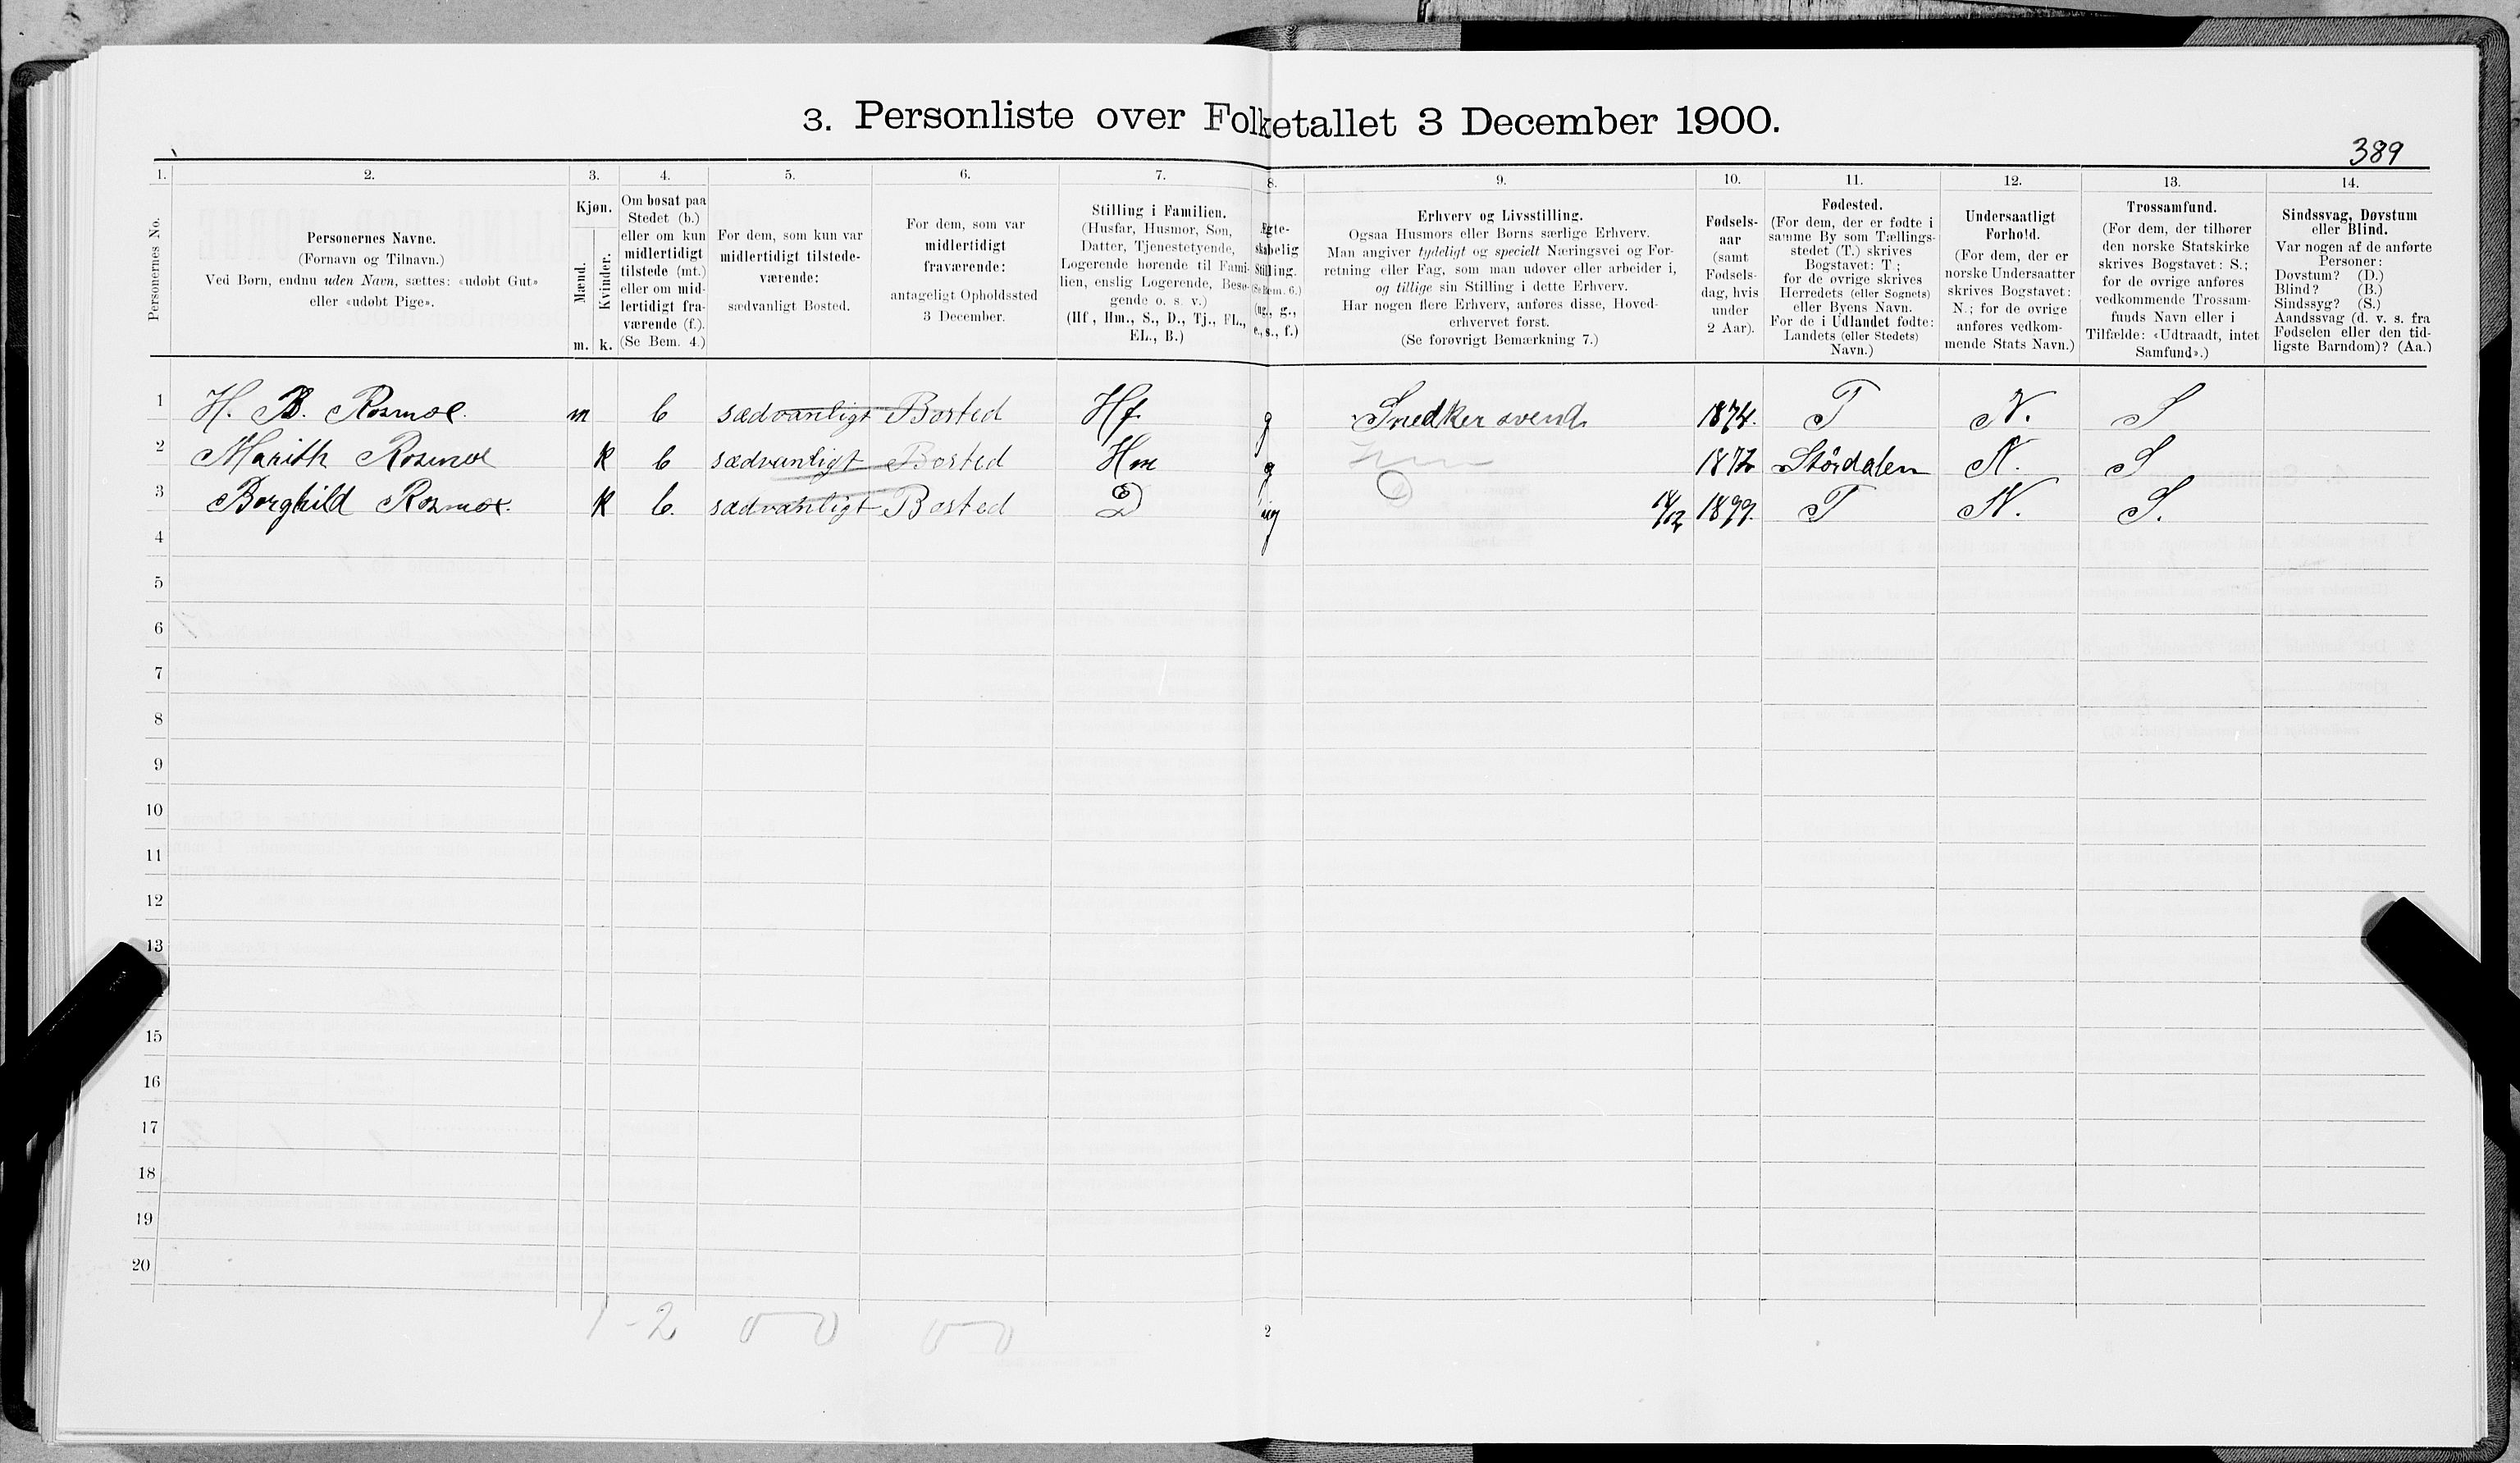 3. Personliste over Folketallet 3 December 1900.
389
1. 2. 3. 4. 5. 6. 7. 8. 9. 10. 11. 12. 13. 14.
Personernes No.
Personernes Navne.
(Fornavn og Tilnavn.)
Ved Børn, endnu uden Navn, sættes: «udøbt Gut»
eller «udøbt Pige».
Kjøn.
Mænd.
Kvinder.
m. k.
Om bosat paa
Stedet (b.)
eller om kun
midlertidigt
tilstede (mt.)
eller om mid-
lertidigt fra-
værende (f.).
(Se Bem. 4.)
For dem, som kun var
midlertidigt tilstede-
værende:
sædvanligt Bosted.
For dem, som var
midlertidigt
fraværende:
antageligt Opholdssted
3 December.
Stilling i Familien.
(Husfar, Husmor, Søn,
Datter, Tjenestetyende,
Logerende hørende til Fami-
lien, enslig Logerende, Besø-
gende o. s. v.)
(Hf, Hm., S., D., Tj., FL.,
EL., B.)
Ægte-
skabelig
Stilling.
(Se Bem. 6.)
(ug., g.,
e., s., f.)
Erhverv og Livsstilling.
Ogsaa Husmors eller Børns særlige Erhverv.
Man angiver tydeligt og specielt Næringsvei og For-
retning eller Fag, som man udøver eller arbeider i,
og tillige sin Stilling i dette Erhverv.
Har nogen flere Erhverv, anføres disse, Hoved-
erhvervet først.
(Se forøvrigt Bemærkning 7.)
Fødsels-
aar
(samt
Fødsels-
dag, hvis
under
2 Aar).
Fødested.
(For dem, der er fødte i
samme By som Tællings-
stedet (T.) skrives
Bogstavet: T;
for de øvrige skrives
Herredets (eller Sognets)
eller Byens Navn.
For de i Udlandet fødte:
Landets (eller Stedets)
Navn.)
Undersaatligt
Forhold.
(For dem, der er
norske Undersaatter
skrives Bogstavet:
N.; for de øvrige
anføres vedkom-
mende Stats Navn.)
Trossamfund.
(For dem, der tilhører
den norske Statskirke
skrives Bogstavet: S.;
for de øvrige anføres
vedkommende Trossam-
funds Navn eller i
Tilfælde: «Udtraadt, intet
Samfund».)
Sindssvag, Døvstum
eller Blind.
Var nogen af de anførte
Personer:
Døvstum? (D.)
Blind? (B.)
Sindssyg? (S.)
Aandssvag (d. v. s. fra
Fødselen eller den tid-
ligste Barndom)? (Aa.)
1 H. B. Rosmoe. m b sædvanligt Bosted Hf g Snedker svend 1874. T N. S
2 Marith Rosmoe k b sædvanligt Bosted Hm g 1872 Stördalen N. S
3 Borghild Rosmoe. k b. sædvanligt Bosted D ug 14/12 1899. T N. S.
4
5
6
7
8
9
10
11
12
13
15
16
17
18
19
20
1-2 0-0 0-0
2